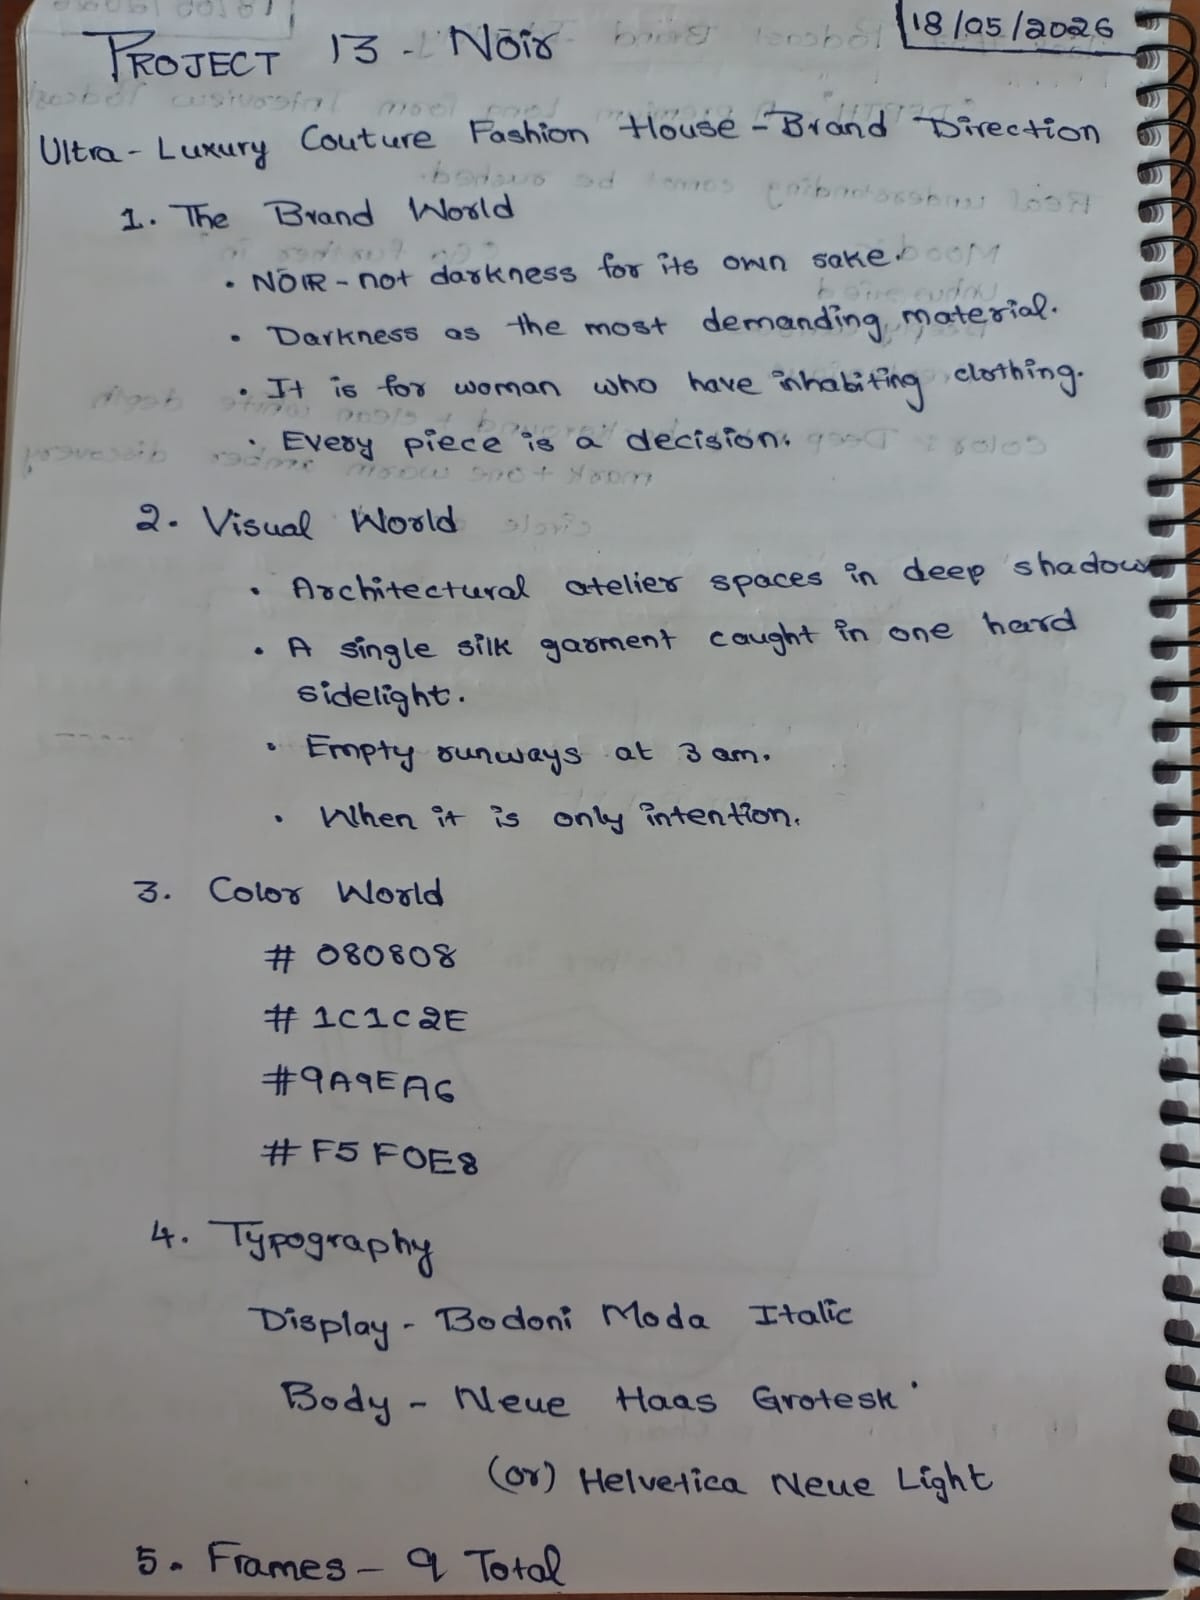 18/05/2026
PROJECT 13 - NŌIR
Ultra-Luxury Couture Fashion House - Brand Direction
1. The Brand World
• NŌIR - not darkness for its own sake.
• Darkness as the most demanding material.
• It is for woman who have inhabiting clothing.
• Every piece is a decision.
2. Visual World
• Architectural atelier spaces in deep shadow
• A single silk garment caught in one hard
sidelight.
• Empty runways at 3 am.
• When it is only intention.
3. Color World
# 080808
# 1C1C2E
#9A9EA6
# F5F0E8
4. Typography
Display - Bodoni Moda Italic
Body - Neue Haas Grotesk
(or) Helvetica Neue Light
5. Frames - 9 Total